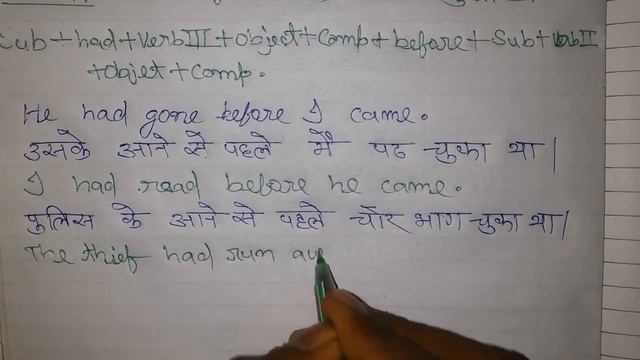 Sub+had+VerbIII+object+Comp+before+Sub+VerbII
+Objet+Comp.
He had gone before I came.
उसके आने से पहले मैं पढ चुका था|
I had read before he came.
पुलिस के आने से पहले चोर भाग चुका था|
The thief had run aw